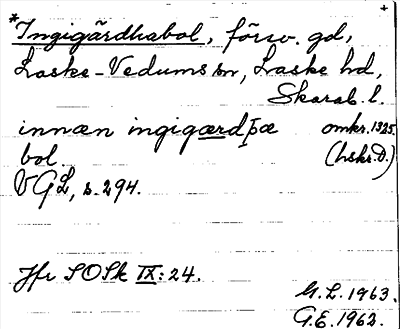 +
*Ingigärdhabol, försv. gd,
Laske-Vedums sn, Laske hd,
Skarab. l.
innæn ingigærdþæ omkr. 1325.
bol. (hskr. D.)
VGL, s. 294.
Jfr SOSk IX: 24.
G.L. 1963.
G.E. 1962.